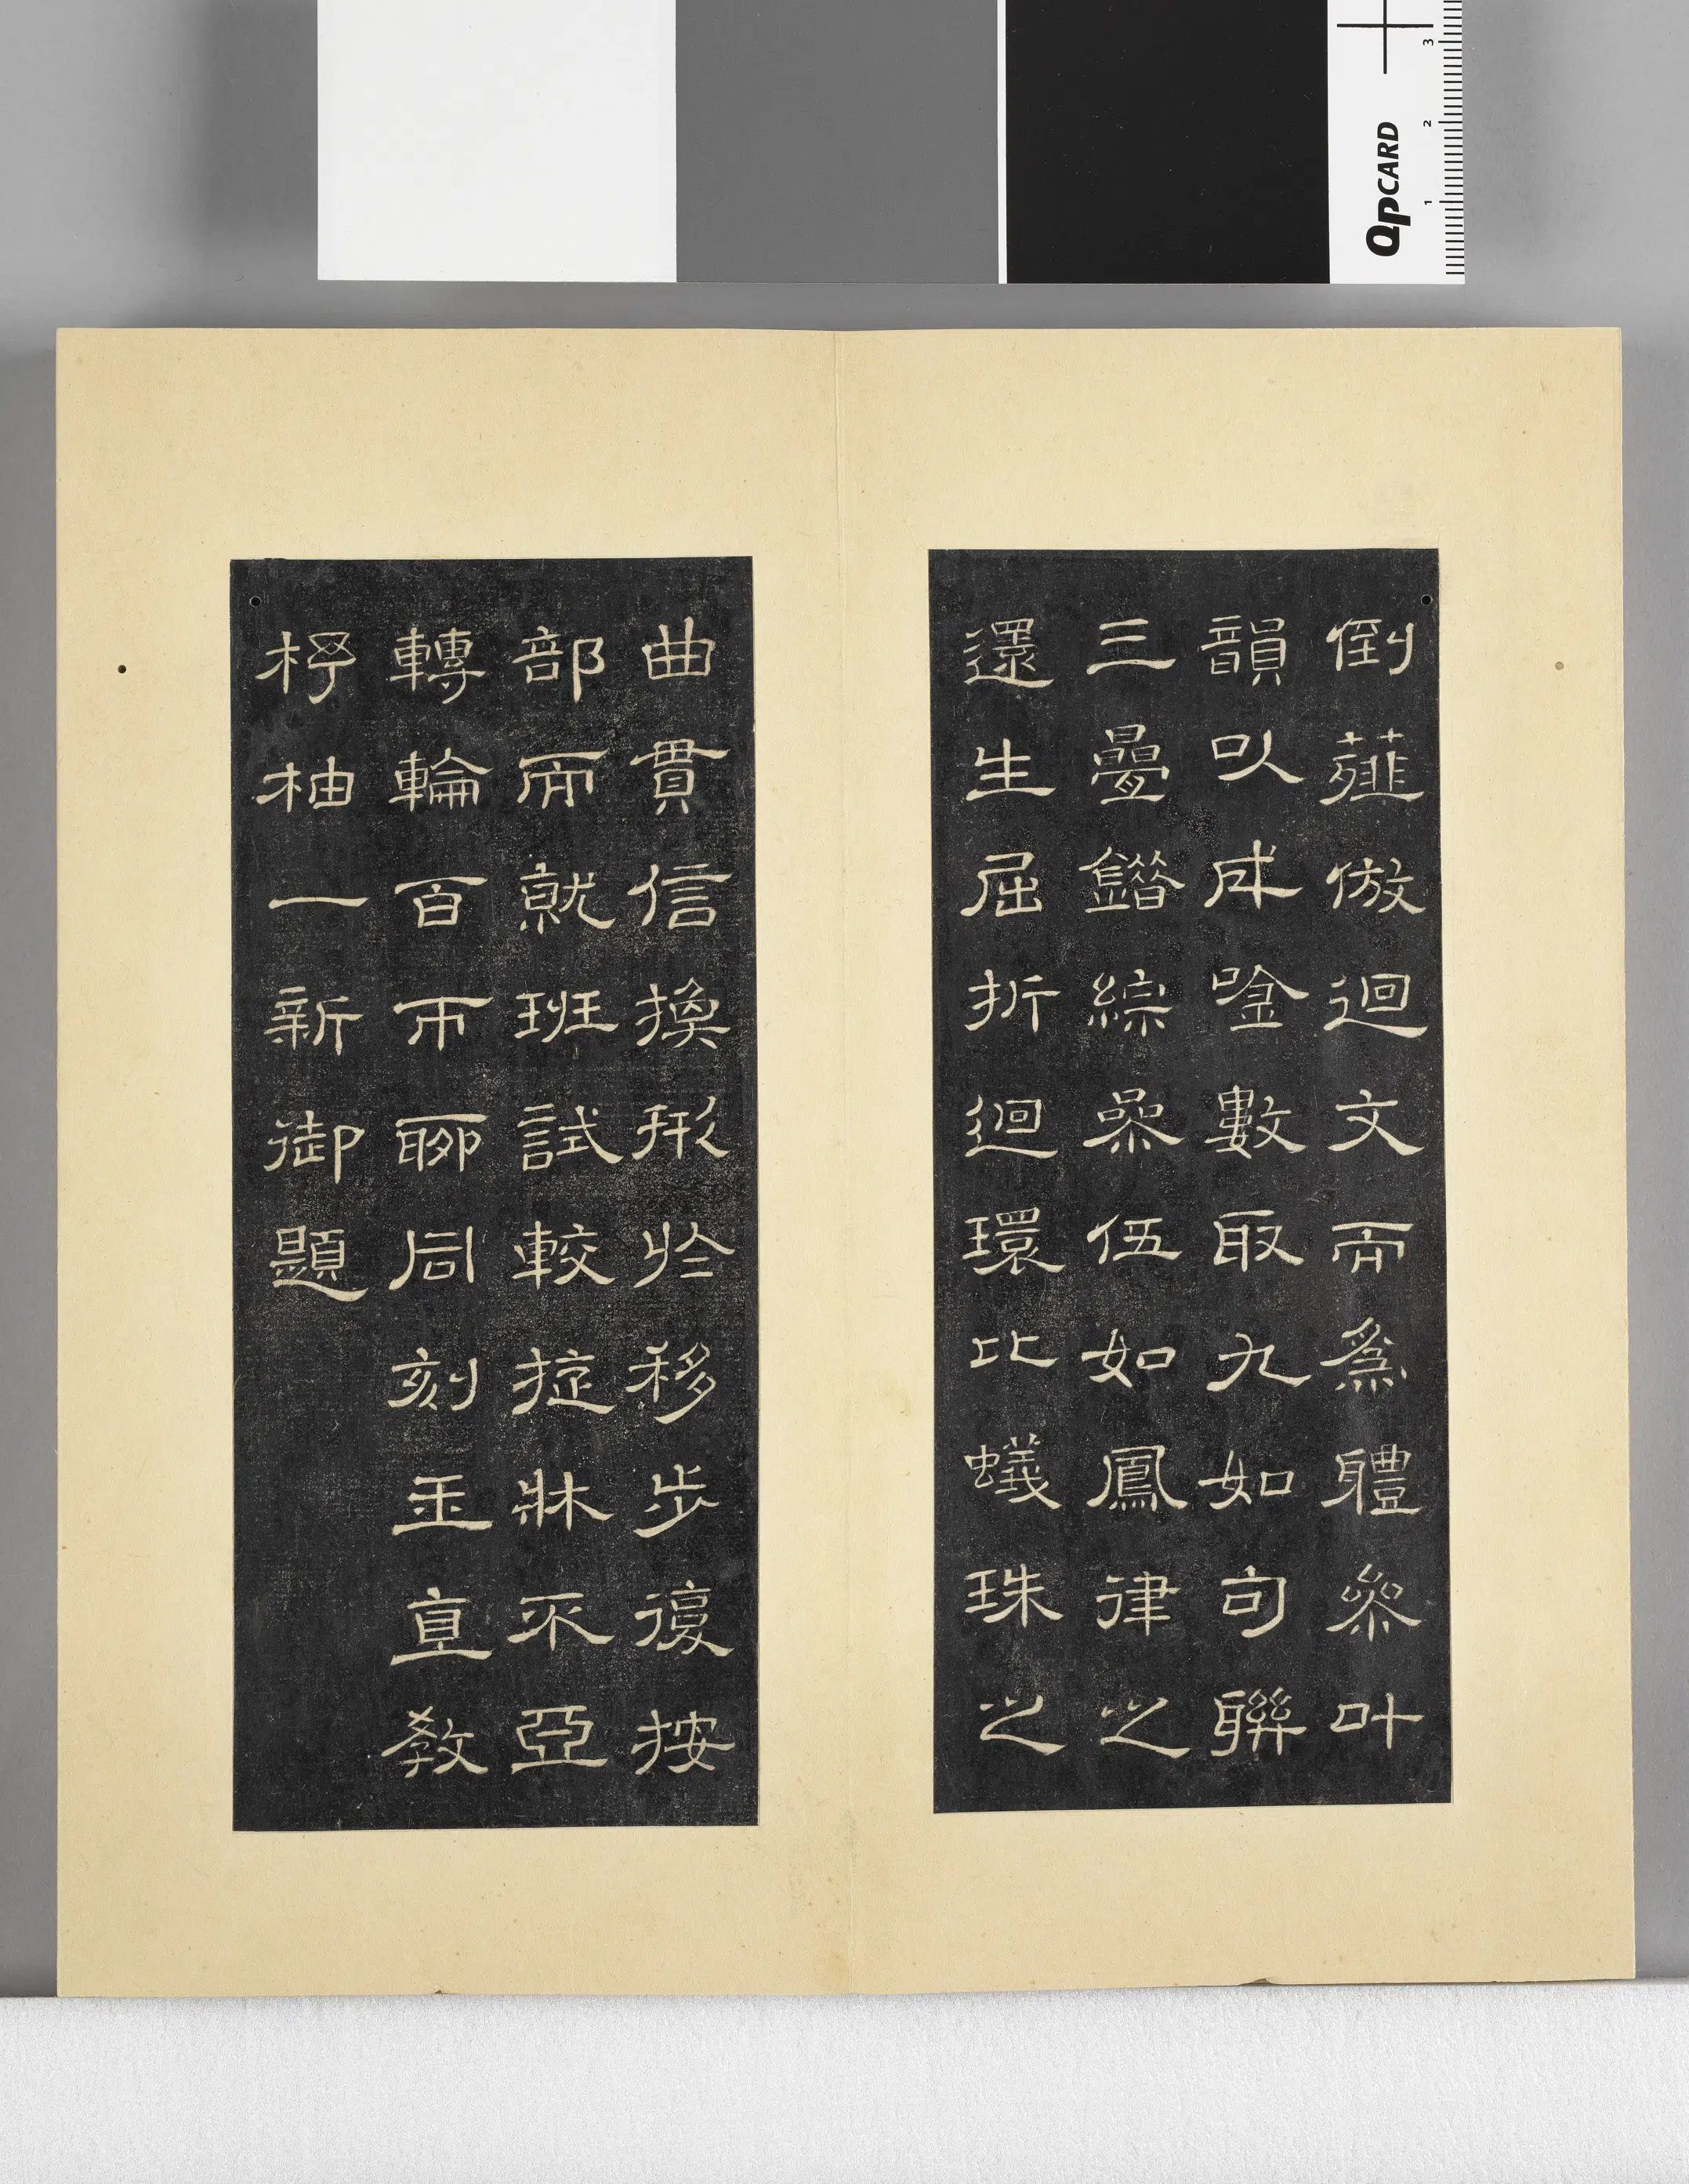 倒薤倣迴文而爲體參叶
韻以成唫數取九如句聯
三疊錯綜參伍如鳳律之
還生屈折迴環比蟻珠之
曲貫信換形於移步復按
部而就班試較旋牀不亞
轉輪百帀聊同刻玉直教
杼柚一新御題
QPCARD
1 2 3